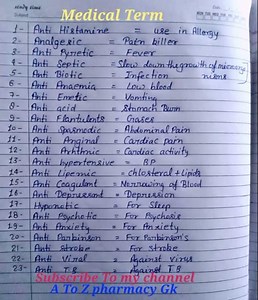 Medical Term
1- Anti Histamine = use in Allergy
2- Analgesic = Pain killer
3- Anti Pyretic = Fever
4- Anti Septic = Slow down the growth of microorg
5- Anti Biotic = Infection nisms
6- Anti Anaemia = Low blood
7- Anti Emetic = Vomting
8- Anti acid = Stomach Burn
9- Anti Flantulents = Gases
10- Anti Spasmedic = Abdominal Pain
11- Anti Anginal = Cardiac pain
12- Anti Arhtmic = Cardiac activity
13- Anti hypertensive = B.P
14- Anti Lipemic = Chlosteral + Lipids
15- Anti Coagulant = Narrowing of Blood
16- Anti Depressant = Depression
17- Hyponotic = For Sleep
18- Anti Psychotic = For Psychosis
19- Anti Anxiety = For Anxiety
20- Anti Parkinson = For Parkinson's
21- Anti Stroke = For stroke
22- Anti Viral = Against virus
23- Anti T.B Against T.B
Subscribe To my channel
A To Z pharmacy Gk